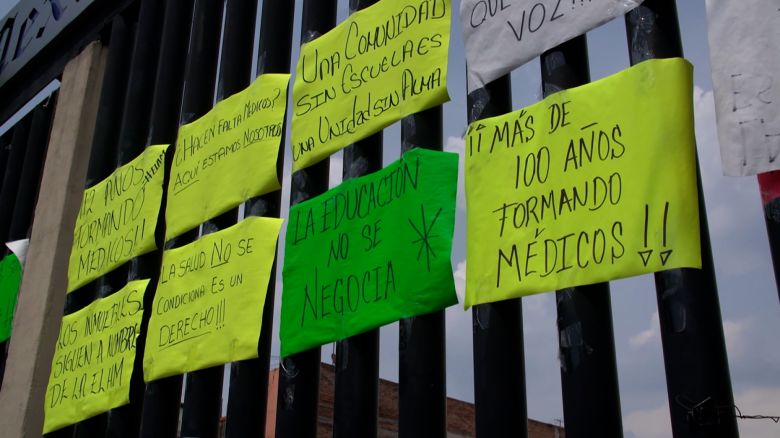 QUE
VOZ!!!
UNA COMUNIDAD
SIN ESCUELA ES
UNA UNIDAD SIN ALMA
¿HACEN FALTA MÉDICOS?
AQUÍ ESTAMOS NOSOTROS
¡¡ MÁS DE
100 AÑOS
FORMANDO
MÉDICOS !!
112 AÑOS
FORMANDO
MEDICOS!!
LA EDUCACIÓN
NO SE
NEGOCIA
LA SALUD NO SE
CONDICIONA ES UN
DERECHO!!!
LOS INMUEBLES
SIGUEN A NOMBRE
DE LA ELHM